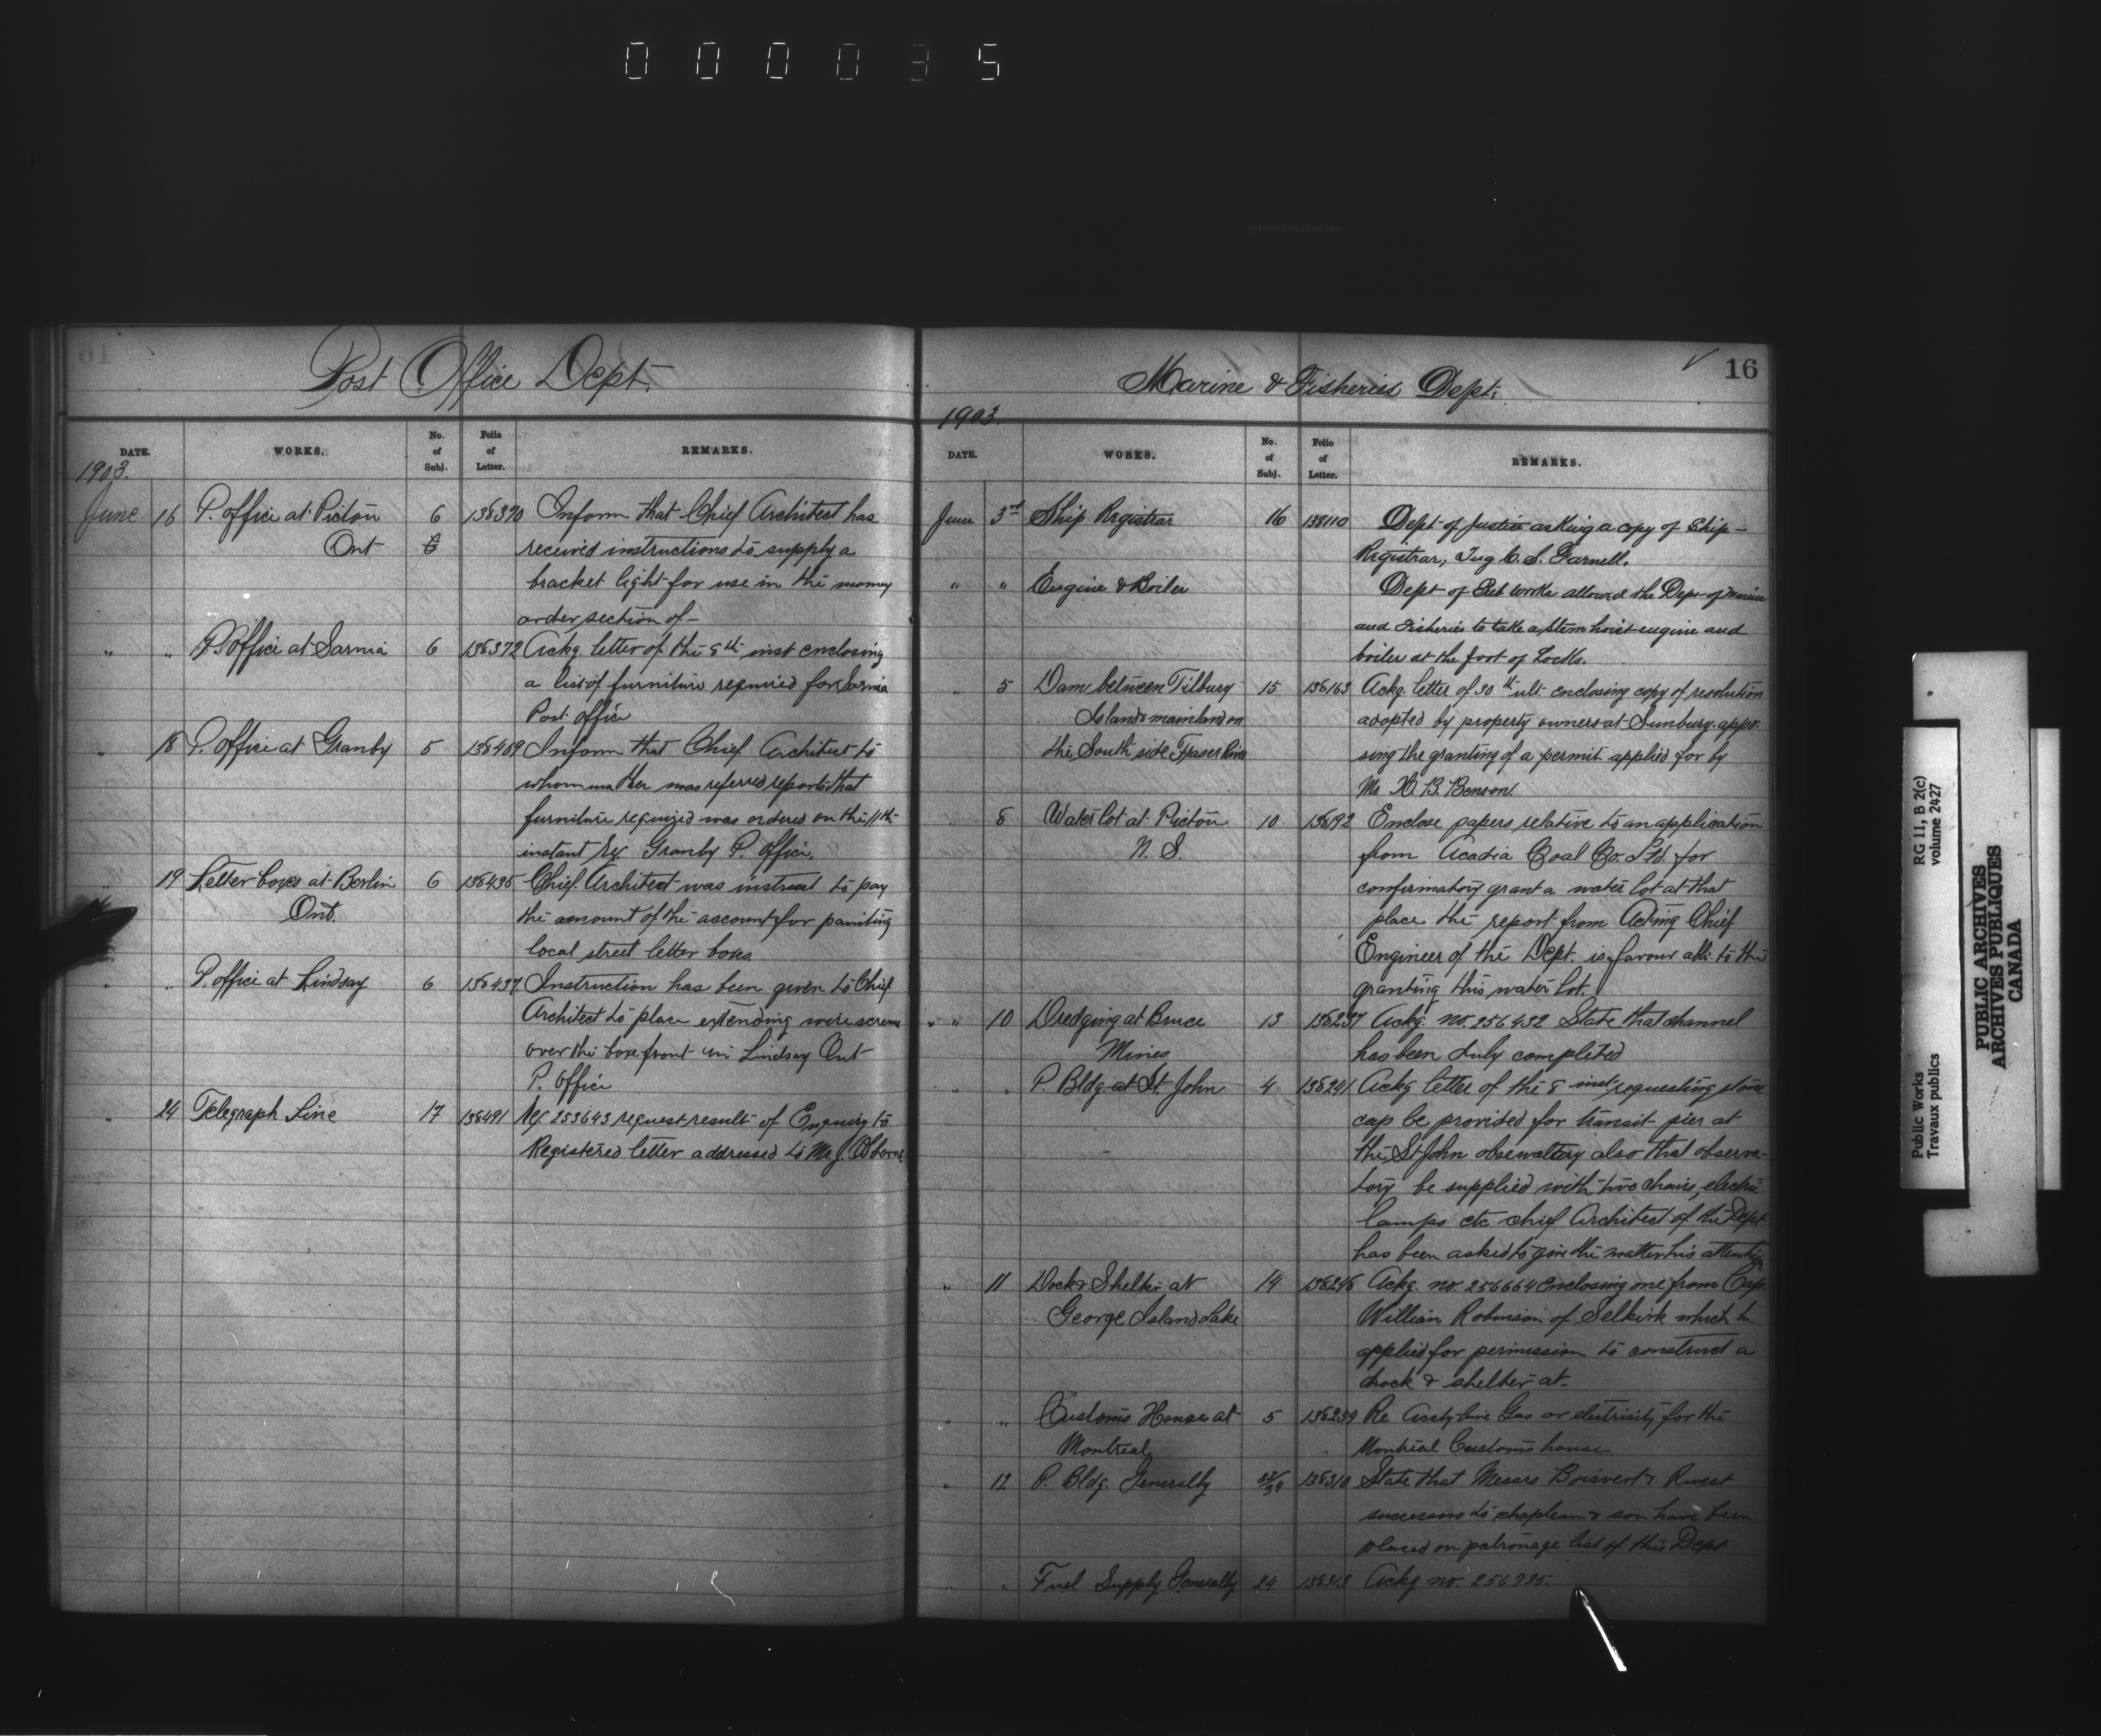 000035
Post Office Dept.
DATE.
WORKS.
No. of Subj.
Folio of Letter.
REMARKS.
1903.
June 16 P. office at Picton 6 138370 Inform that Chief Architect has
Ont 6 received instructions to supply a
bracket light for use in the money
order section of-
" " P. Office at Sarnia 6 138372 Ackg. letter of the 8th inst enclosing
a list of furniture required for Sarnia
Post office
" 18 P. office at Granby 5 138409 Inform that Chief Architect to
whom matter was referred reports that
furniture required was ordered on the 11th
instant re Granby P. office.
" 19 Letter boxes at Berlin 6 138435 Chief Architect was instruct to pay
Ont. the amount of the account for painting
local street letter boxes
" " P. office at Lindsay 6 138437 Instruction has been given to Chief
Architect to place extending wire screens
over the box front in Lindsay Ont
P. Office
" 24 Telegraph Line 17 138491 253643 request result of Enquiry to
Registered letter addressed to Mr. J. Osborne
Marine & Fisheries Dept.
16
1903.
DATE.
WORKS.
No. of Subj.
Folio of Letter.
REMARKS.
June 3rd Ship Registrar 16 138110 Dept of Justice asking a copy of Ship-
Registrar, Tug C. S. Farnell.
" " Engine & Boiler Dept of Pub Works allowed the Dept of Marine
and Fisheries to take a stem hoist engine and
boiler at the foot of Locks.
" 5 Dam between Tilbury 15 138163 Ackg. letter of 30th ult enclosing copy of resolution
Island & mainland on adopted by property owners at Sunbury appo-
the South side Fraser River sing the granting of a permit applied for by
Mr. H. B. Benson.
8 Water lot at Pictou 10 138192 Enclose papers relative to an application
N. S. from Acadia Coal Co. Ltd. for
confirmatory grant a water lot at that
place the report from Acting Chief
Engineer of the Dept. is favour able to the
granting this water lot.
" " 10 Dredging at Bruce 13 138237 Ackg. no. 256432 State that channel
Mines has been duly completed
" " P. Bldg at St. John 4 138241 Ackg letter of the 8 inst requesting stone
cap be provided for transit pier at
the St John observatory also that observa-
tory be supplied with two chairs, electric
lamps etc chief Architect of the Dept
has been asked to give the matter his attention
" 11 Dock & Shelter at 14 138246 Ackg. no. 256664 enclosing one from Cap.
George Island Lake William Robinson of Selkirk which he
applied for permission to construct a
dock & shelter at-
" " Customs House at 5 138254 Re Acetylene Gas or electricity for the
Montreal Montreal Customs house
" 12 P. Bldg. Generally 138310 State that Messrs Boisvert &
successors to chapleau & son have been
placed on patronage list of this Dept
" " Fuel Supply Generally 24 138313 Ackg no. 256935.
Public Works
Travaux publics
RG 11, B 2(c)
volume 2427
PUBLIC ARCHIVES
ARCHIVES PUBLIQUES
CANADA